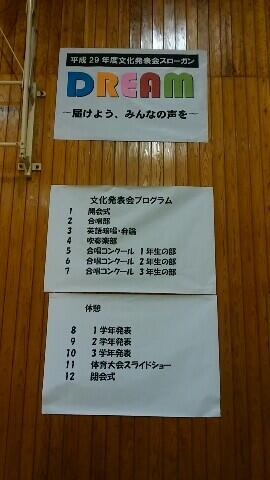 平成29年度文化発表会スローガン
DREAM
－届けよう、みんなの声を－
文化発表会プログラム
1 開会式
2 合唱部
3 英語暗唱・弁論
4 吹奏楽部
5 合唱コンクール 1年生の部
6 合唱コンクール 2年生の部
7 合唱コンクール 3年生の部
休憩
8 1学年発表
9 2学年発表
10 3学年発表
11 体育大会スライドショー
12 閉会式